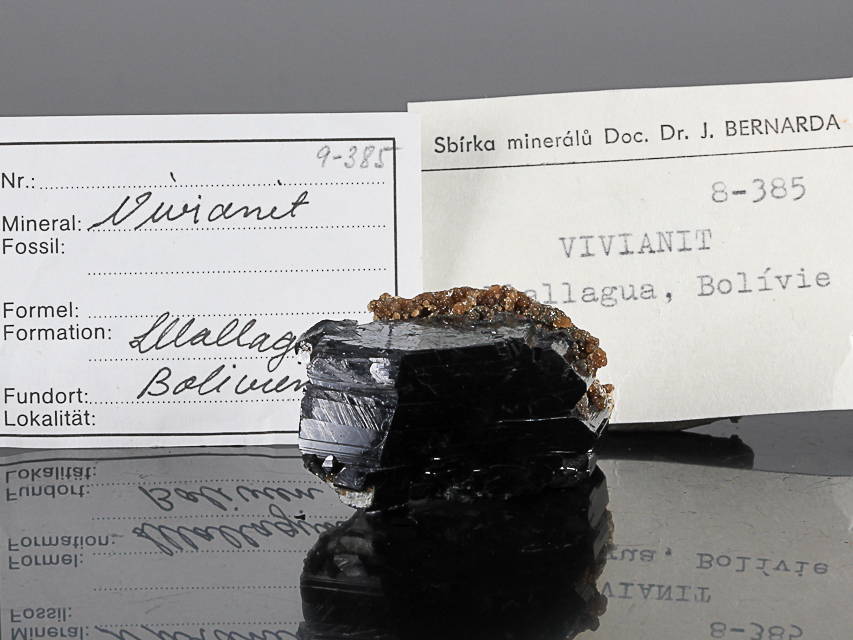 9-385
Nr.:
Mineral: Vivianit
Fossil:
Formel:
Formation: Llallag
Bolivien
Fundort:
Lokalität:
Sbírka minerálů Doc. Dr. J. BERNARDA
8-385
VIVIANIT
allagua, Bolívie